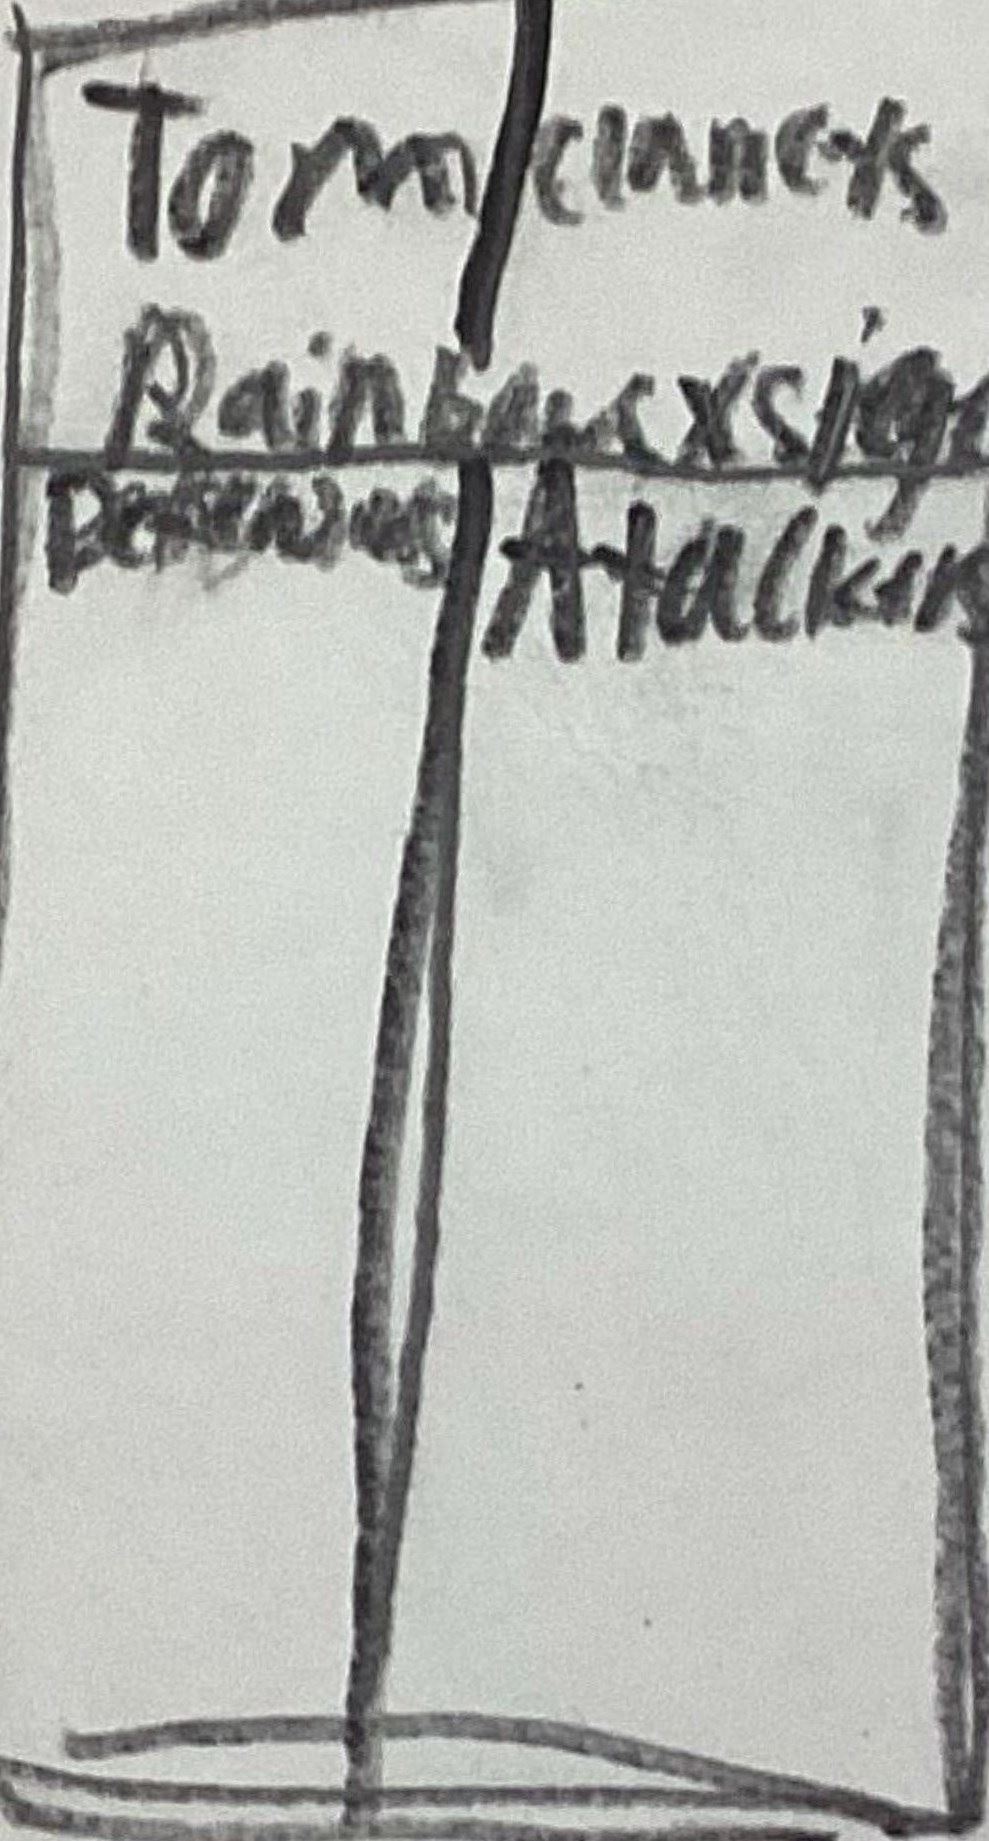 Tom clancys
Rainbow sixsige
Defenders Atacker